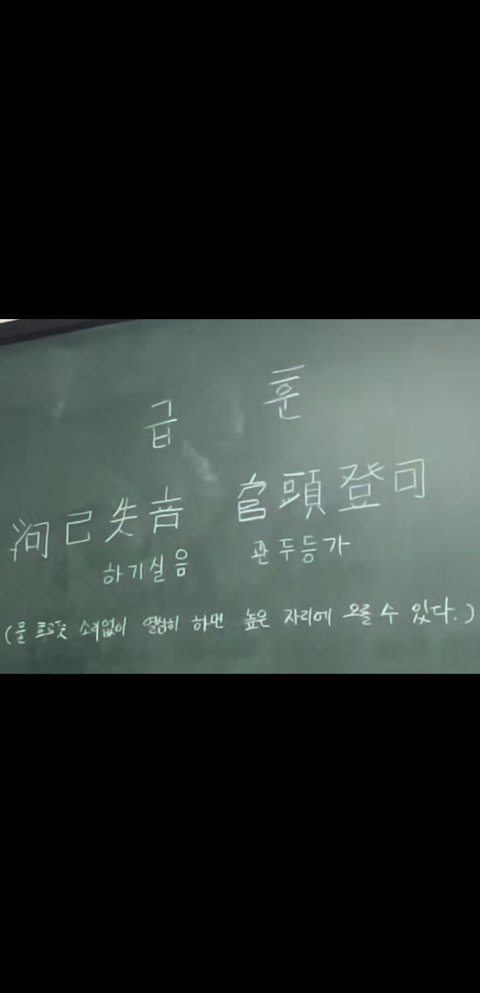 급 훈
河己失音 官頭登可
하기실음 관두등가
(물 흐르듯 소리없이 열심히 하면 높은 자리에 오를 수 있다.)